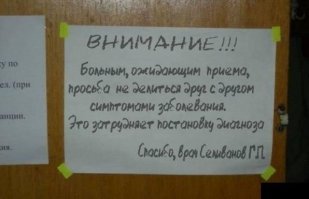 ку по
ел. (при
анции.
ия.
ВНИМАНИЕ!!!
Больным, ожидающим приема,
просьба не делиться друг с другом
симптомами заболевания.
Это затрудняет постановку диагноза
Спасибо, врач Селиванов Г.П.